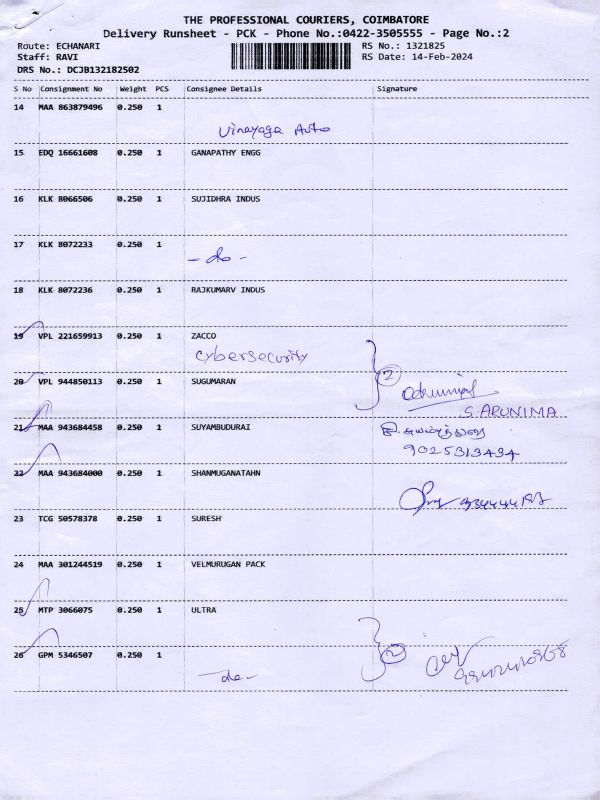 THE PROFESSIONAL COURIERS, COIMBATORE
Delivery Runsheet - PCK - Phone No.:0422-3505555 - Page No.:2
Route: ECHANARI RS No.: 1321825
Staff: RAVI RS Date: 14-Feb-2024
DRS No.: DCJB132182502
S No Consignment No Weight PCS Consignee Details Signature
14 MAA 863879496 0.250 1
Vinayaga Auto
15 EDQ 16661608 0.250 1 GANAPATHY ENGG
16 KLK 8066506 0.250 1 SUJIDHRA INDUS
17 KLK 8072233 0.250 1
- do -
18 KLK 8072236 0.250 1 RAJKUMARV INDUS
19 VPL 221659913 0.250 1 ZACCO
cybersecurity
20 VPL 944850113 0.250 1 SUGUMARAN 2
S. ARUNIMA
21 MAA 943684458 0.250 1 SUYAMBUDURAI
9025313434
22 MAA 943684000 0.250 1 SHANMUGANATAHN
23 TCG 50578378 0.250 1 SURESH
24 MAA 301244519 0.250 1 VELMURUGAN PACK
25 MTP 3066075 0.250 1 ULTRA
26 GPM 5346507 0.250 1 2
- do -